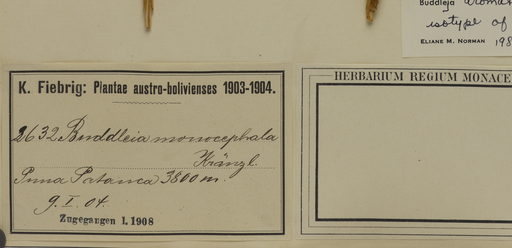 Buddleja aromat
isotype of
ELIANE M. NORMAN 198
K. Fiebrig: Plantae austro-bolivienses 1903-1904.
2632 Buddleia monocephala
Kränzl.
Puna Patanca 3800 m.
9. I. 04.
Zugegangen I. 1908
HERBARIUM REGIUM MONACE